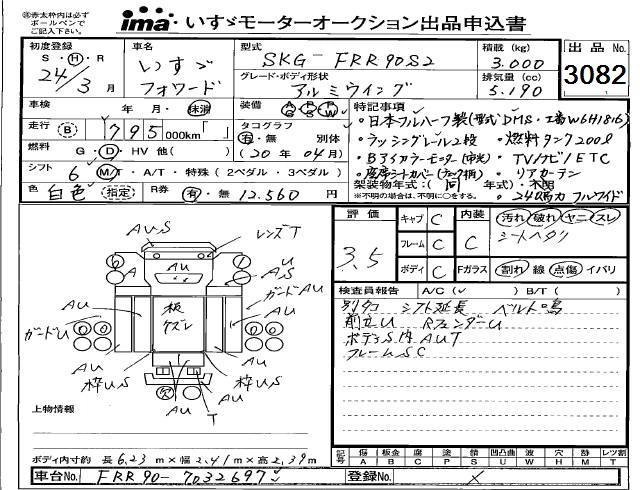 ※赤太枠内は必ず
ボールペンで
ご記入下さい。
ima いすゞモーターオークション出品申込書
初度登録
S・H・R
24/3月
車名
いすゞ
フォワード
型式
SKG-FRR90S2
グレード・ボディ形状
アルミウイング
積載 (kg)
3.000
排気量 (cc)
5.190
出品No.
3082
車検 年・月・抹消
装備 AC PS PW
走行 B 795000km「 」
タコグラフ
有・無 別体
(20年04月)
燃料 G・D・HV 他( )
シフト 6 M/T・A/T・特殊(2ペダル・3ペダル)
色 白色 指定 R券 有・無 12.560円
特記事項
・日本フルハーフ製(型式DMS・工番W6H1816)
・ラッシングレール2段 ・燃料タンク200ℓ
・Bアイカラーモニター(中光) ・TV/ナビ/ETC
・リアカーテン
架装物年式:( 同 年式)・不明
※不明の場合は、不明に○をする。
・240馬力 フルワイド
評価
3.5
キャブ C
フレーム C
ボディ C
内装 C
Fガラス
汚れ 破れ ヤニ スレ
シートヘタリ
割れ 線 点傷 イバリ
検査員報告 A/C(✓) B/T( )
別タコ シフト延長 ベルト鳴
前立U RフェンダーU
ボデーS内AUT
フレームSC
AU.S
レンズT
U
A
AU
A.S
ガードAU
AU
板
ケズレ
AU
ガードU
AU
AU
枠U.S
枠U.S
AU
AU
T
上物情報
ボディ内寸約 長6.23m×幅2.41m×高2.39m
記号 傷A 板金B 腐C 塗P 錆S 凹凸曲U 波W 穴H 跡M レツ割T
車台No. FRR90-7032697✓
登録No. ×